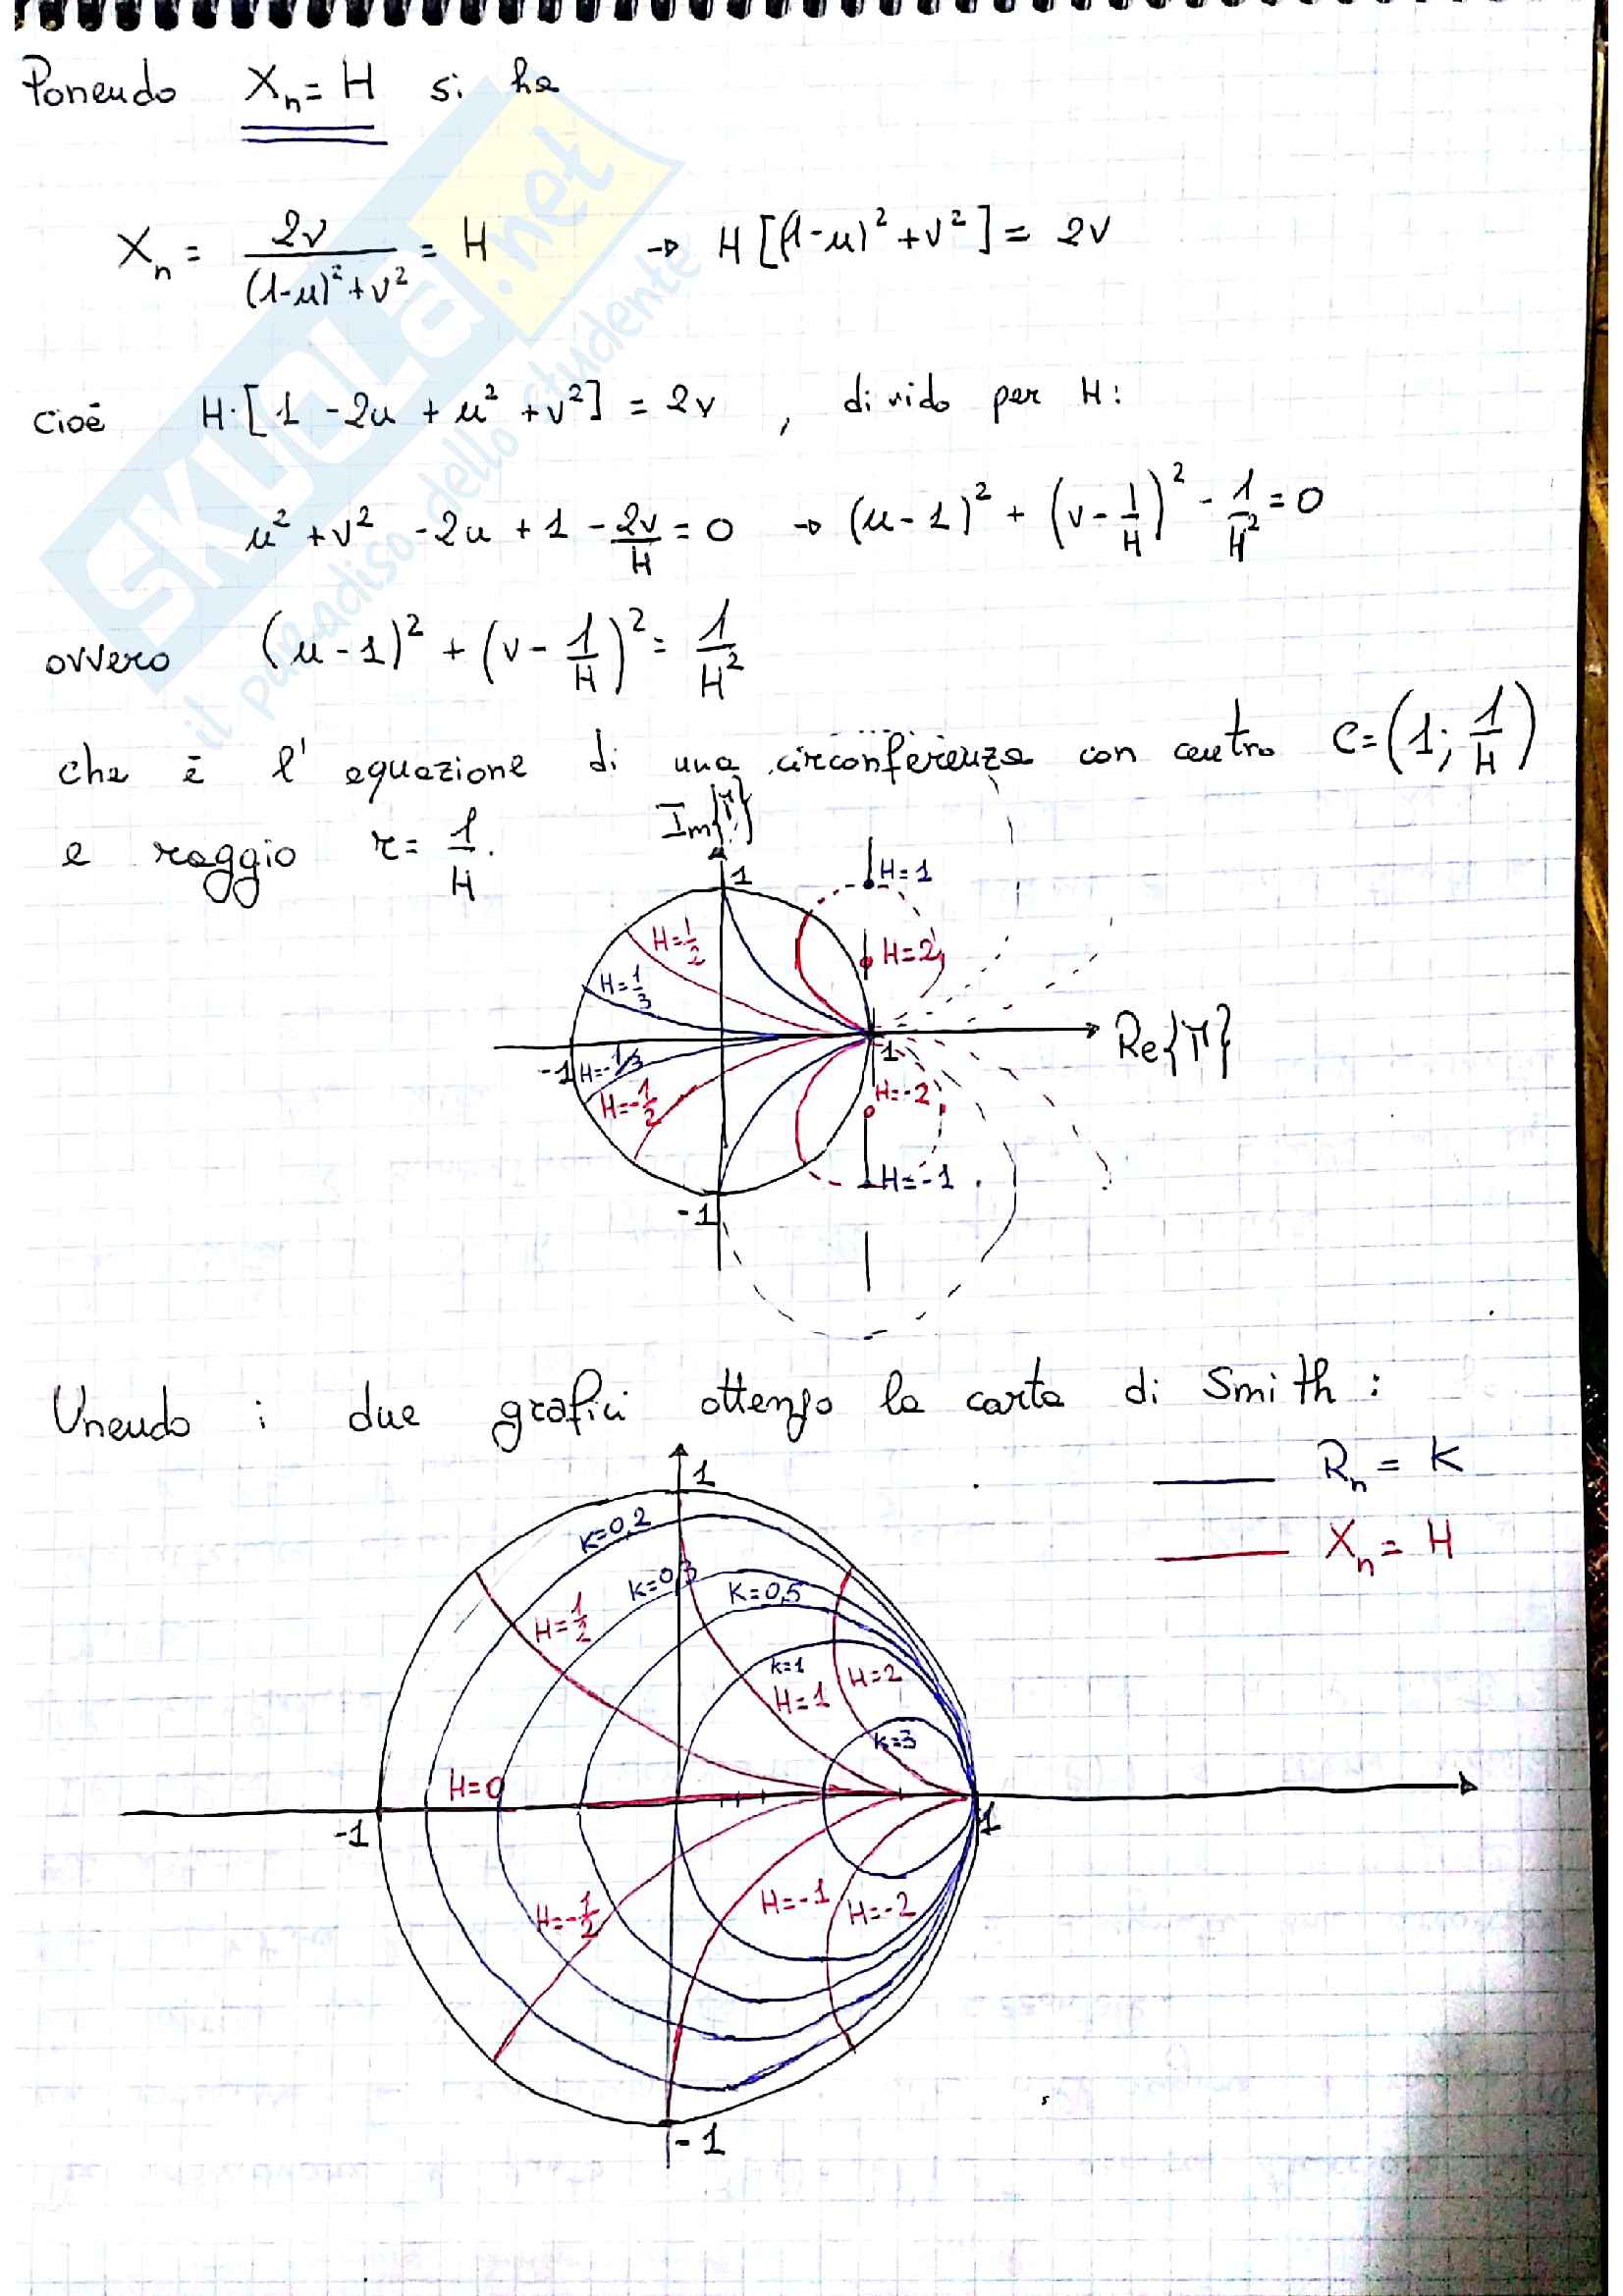 Ponendo Xn = H si ha
Xn = 2v / ((1-u)² + v²) = H → H[(1-u)² + v²] = 2v
cioè H·[1 - 2u + u² + v²] = 2v , divido per H:
u² + v² - 2u + 1 - 2v/H = 0 → (u-1)² + (v - 1/H)² - 1/H² = 0
ovvero (u-1)² + (v - 1/H)² = 1/H²
che è l' equazione di una circonferenza con centro C = (1; 1/H)
e raggio r = 1/H.
Im{Γ}
1
H=1
H=1/2
H=2
H=1/3
Re{Γ}
-1
1
H=-1/3
H=-1/2
H=-2
H=-1
-1
Unendo i due grafici ottengo la carta di Smith :
Rn = K
Xn = H
1
K=0,2
K=0,3
K=0,5
H=1/2
K=1
H=1
H=2
K=3
H=0
-1
1
H=-1/2
H=-1
H=-2
-1
SKUOLA.net
il paradiso dello studente